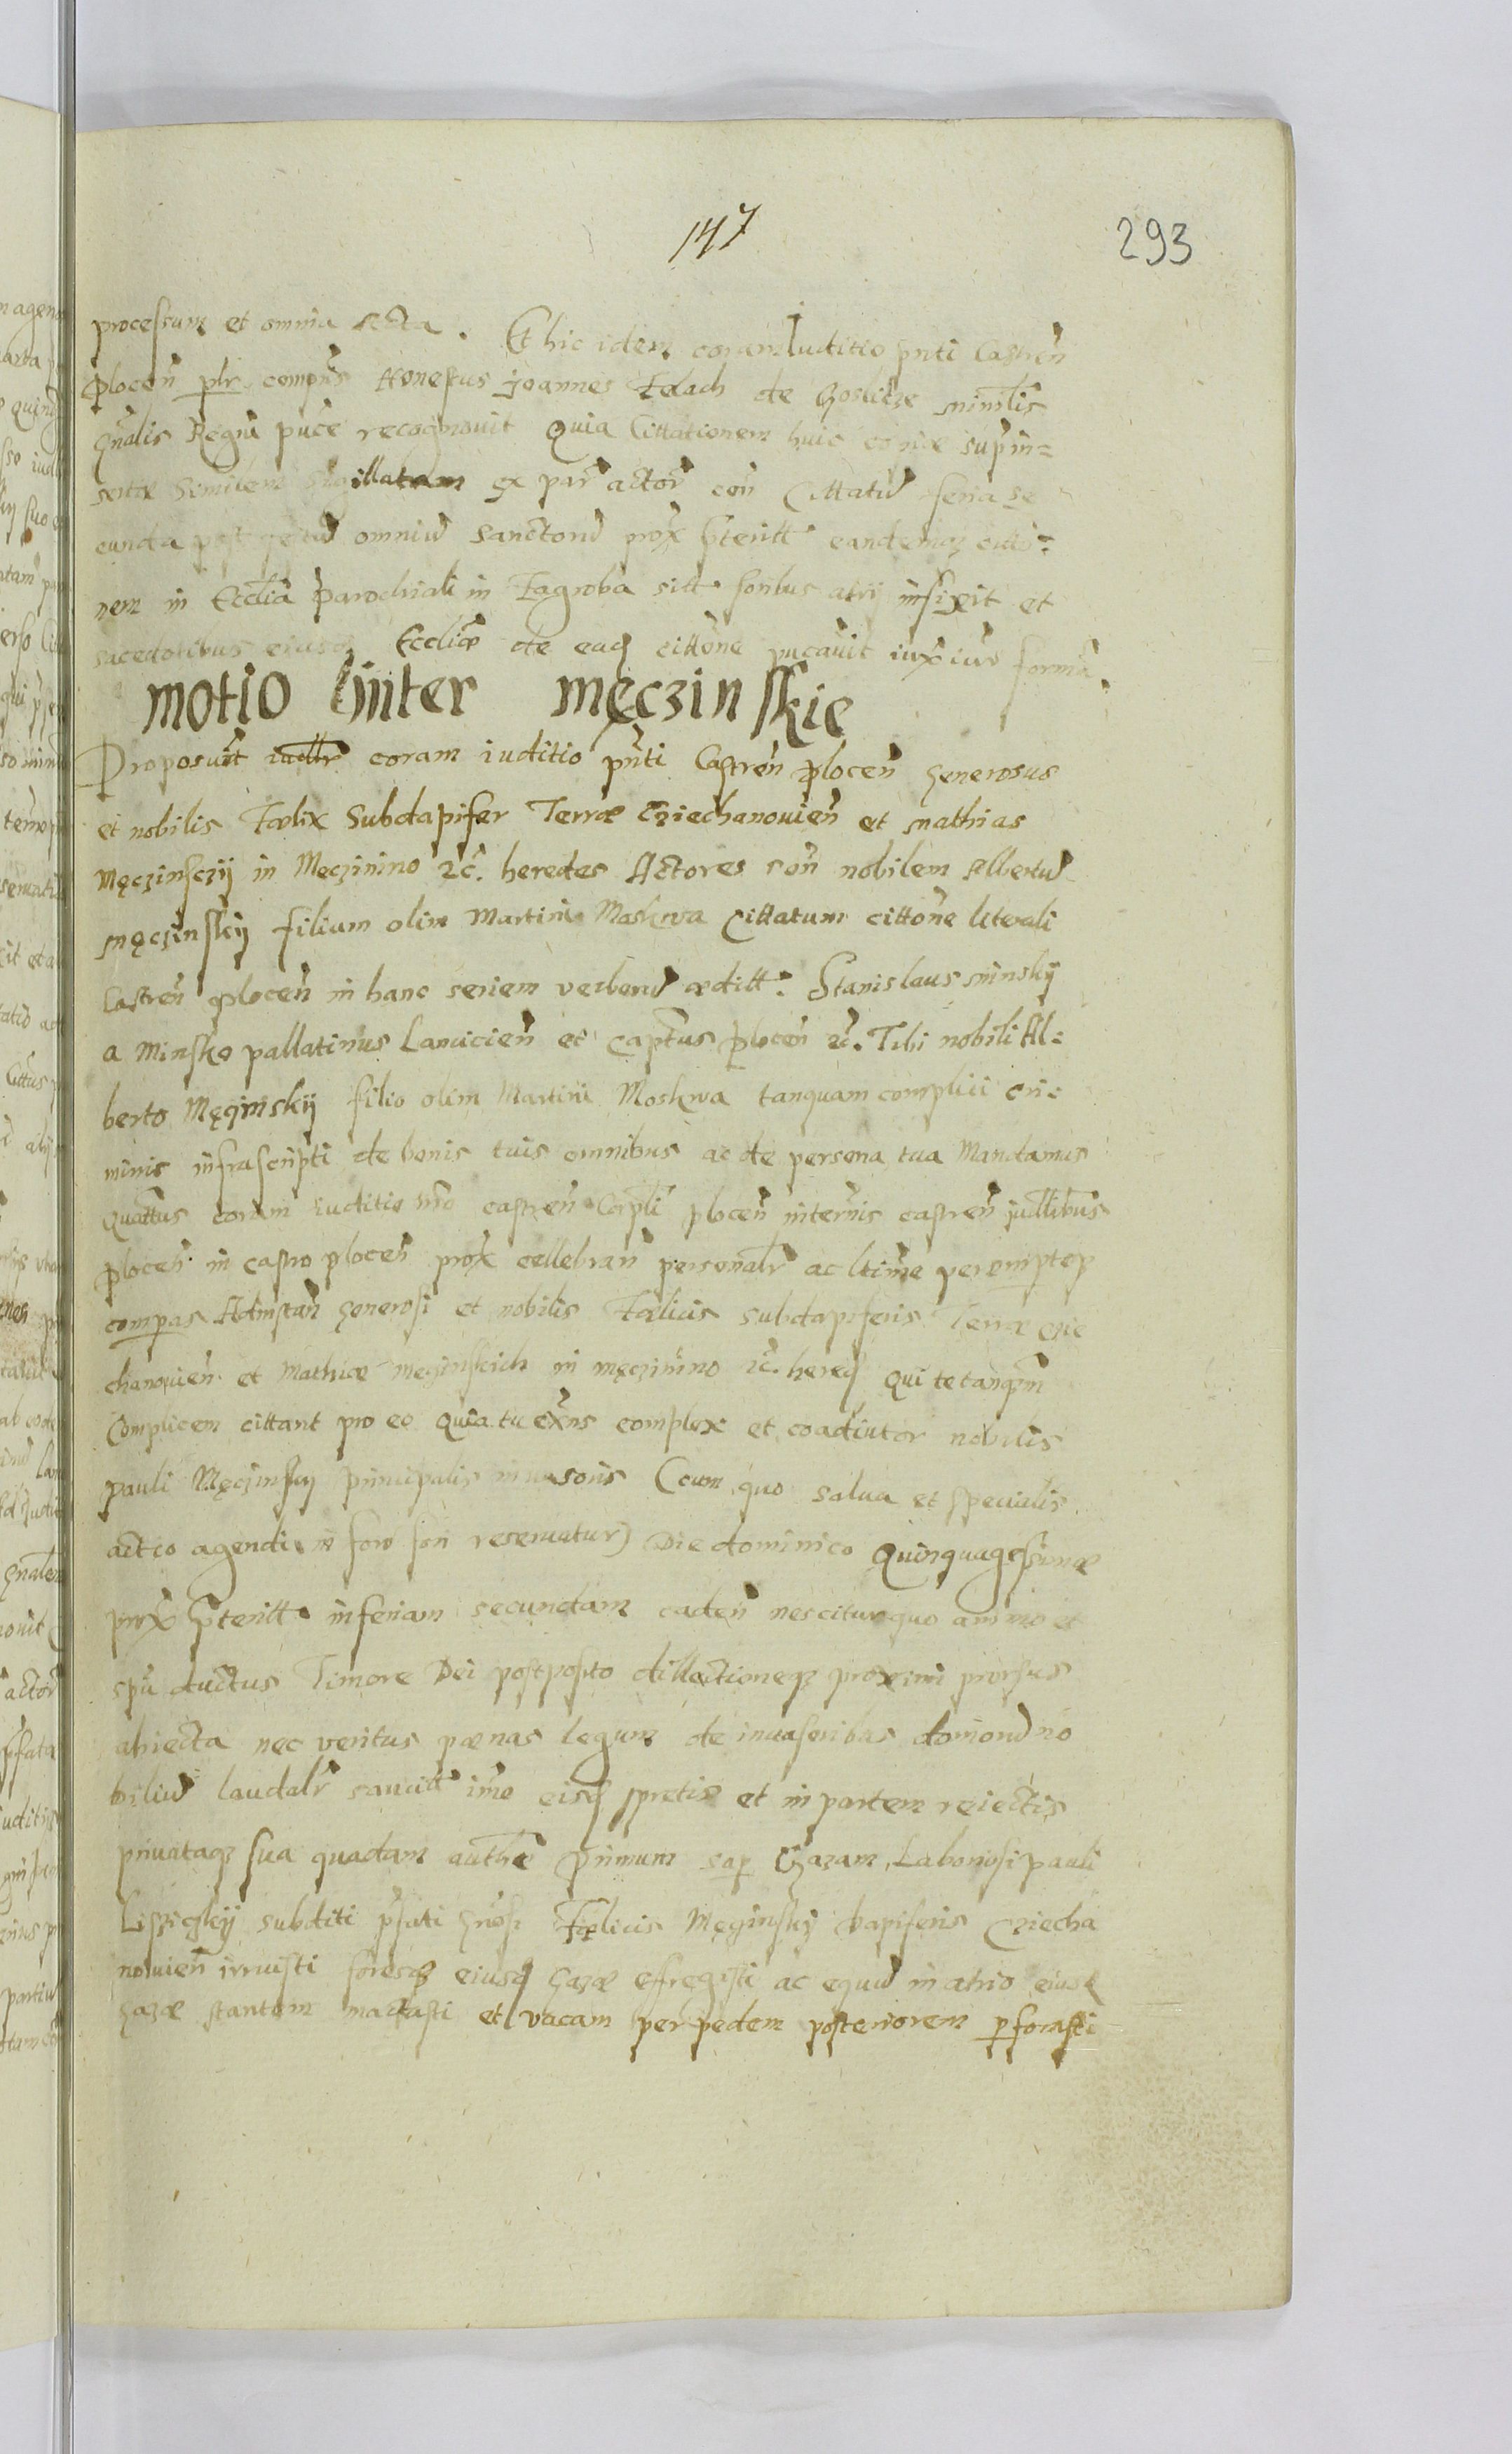 147
293
processum et omnia acta. Et hic idem coram Iuditio pnti Castren
plocen plr compns Honestus Joannes Zelach de Goslicze minilis
gnalis Regni puce recognovit Quia Cittationem huic copiae supin=
sertae Similem sigillatam ex par actor con Cittatu feria se
cunda post festu omniu Sanctoru prox pteritt eandemq citto=
nem in Ecclia Parochiali in Zagroba sitt foribus atrij infixit et
sacedotibus eiusq Eccliae de eaq cittone pucavit iux iur forma.
Motio Inter Męczinskie
Proposuit iudltr coram iuditio pnti Castren plocen generosus
et nobilis Faelix Subdapifer Terrae Cziechanouien et Mathias
Męczinsczij in Męczinino 2c. heredes Actores con nobilem Albertu
Męczinskij filium olim Martini Moskwa Cittatum cittone literali
Castren plocen in hanc seriem verboru aeditt. Stanislaus Minskij
a Minsko pallatinus Lancicien et Captus plocen 2c. Tibi nobili Al=
berto Męczinskij filio olim Martini Moskwa tanquam complici cri=
minis infrascripti de bonis tuis omnibus ac de persona tua Mandamus
Quattus coram iuditio nro castren Capli plocen in ternis castren judlibus
plocen in castro plocen prox cellebran personalr ac ltime peremptep
compas Ad instan generosi et nobilis Faelicis subdapiferis Terrae Czie
chanouien et Mathiae Męczinskich in męczinino 2c. hered qui te tanqm
Complicem cittant pro eo Quia tu exns complex et coadiutor nobilis
Pauli Męczinskij principalis inuasoris (cum quo salva et specialis
actio agendi in foro fori reservatur) Die dominico Quinquagessimae
prox pteritt in feriam secundam caden nescitur quo animo et
spu ductus Timore Dei postposito dillectioneq proximi prorsus
abiecta nec veritus paenas legum de invasoribus domoru no
biliu laudalr sancitt imo eisq spretis et in partem reiectis
privataq sua quadam authe primum sup Chazam Laboriosi pauli
Lisziczkij subditi pfati gnosi Faelicis Męczinskij dapiferis Cziecha
nouien irruisti foresq eiusq gazae effregisti ac equu in atrio eiusq
gazae stantem mactasti et vacam per pedem posteriorem pforasti